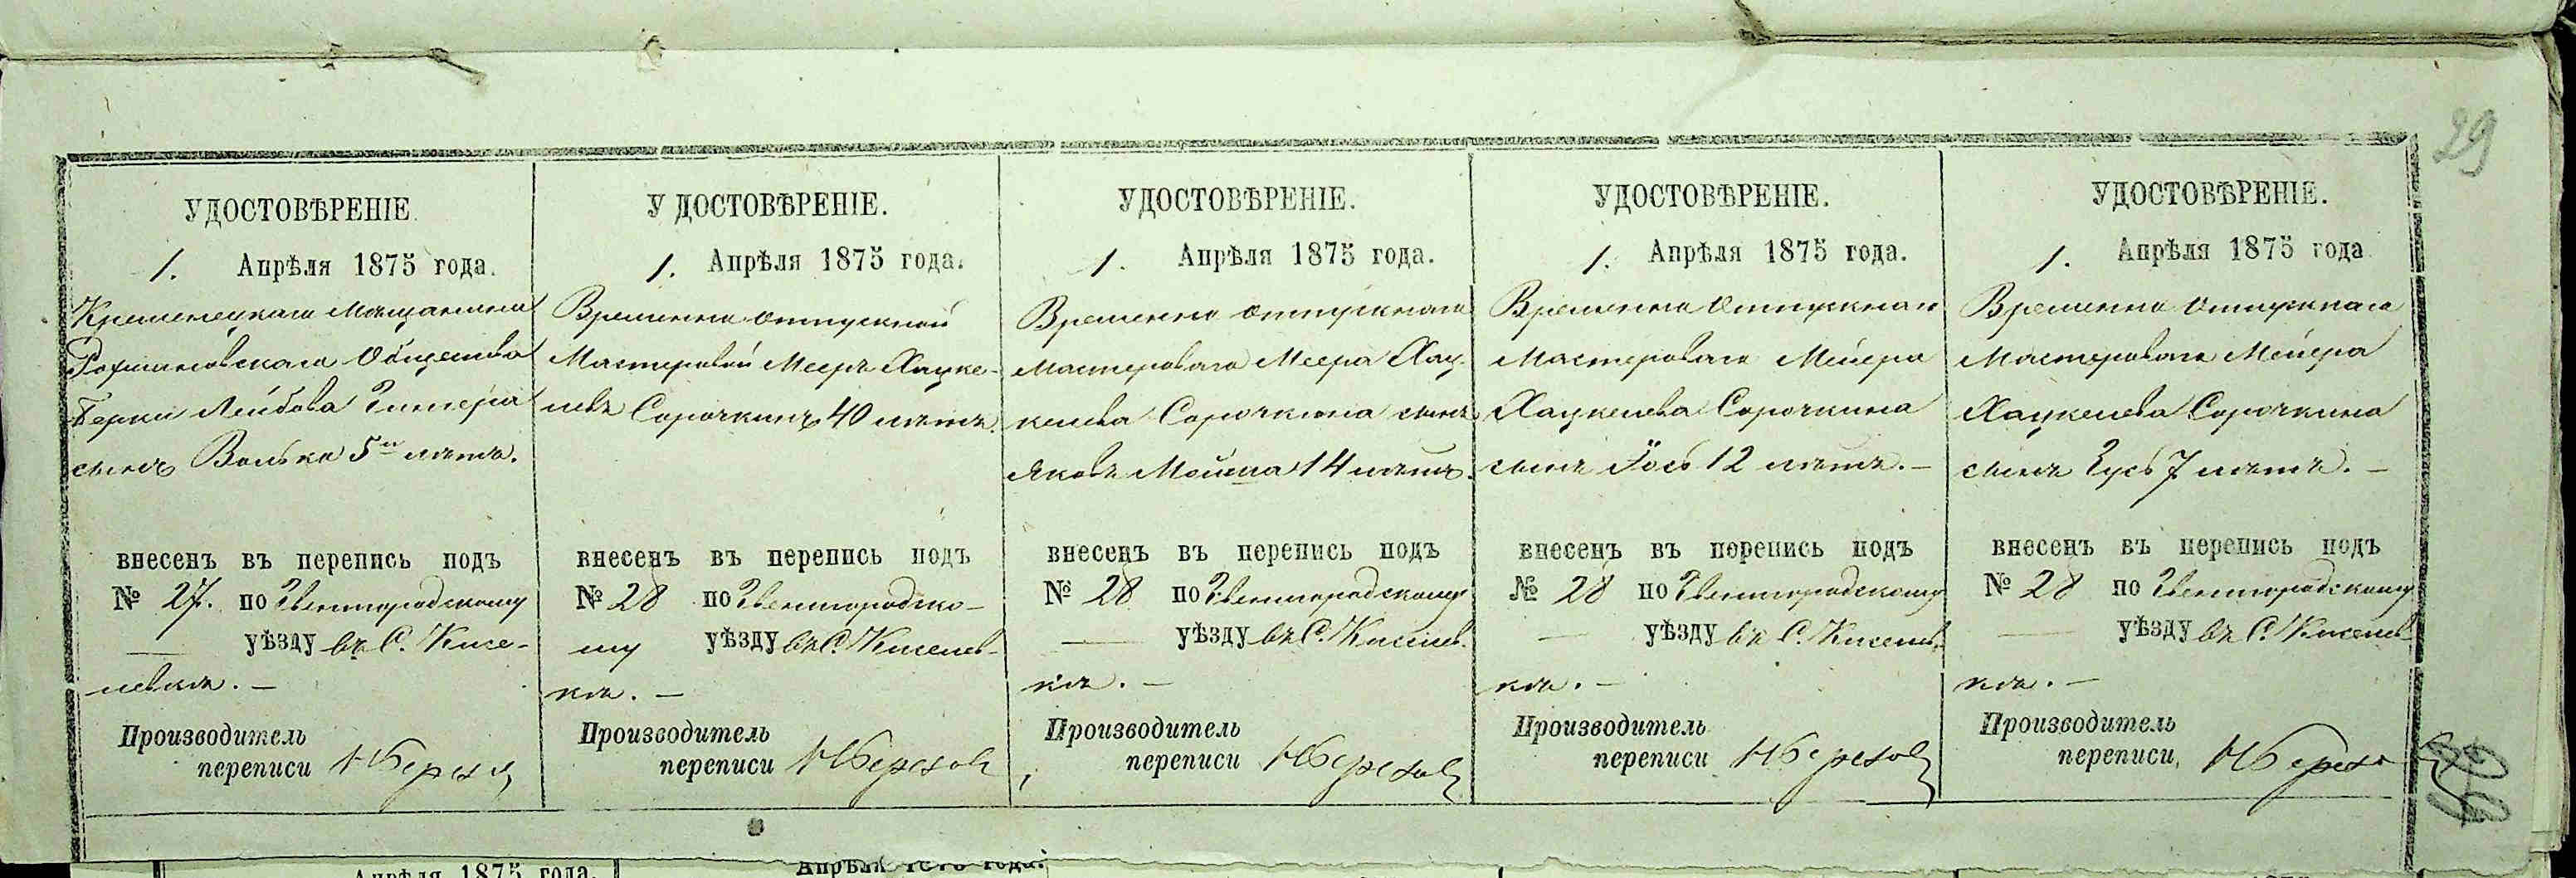 29
УДОСТОВѢРЕНІЕ
1. Апрѣля 1875 года.
Кременецкаго Мѣщанина
Рохмановскаго Общества
Берки Лейбова Гитера
сынъ Волько 5ти лѣтъ.
внесенъ въ перепись подъ
№ 27. по Звенигородскому
— уѣзду въ С. Кисе-
левкѣ. —
Производитель
переписи
УДОСТОВѢРЕНІЕ.
1. Апрѣля 1875 года.
Временно отпускной
Мастеровой Мееръ Хацке-
левъ Сорочкинъ 40 лѣтъ.
внесенъ въ перепись подъ
№ 28 по Звенигородско-
му уѣзду въ С. Киселев-
кѣ. —
Производитель
переписи
УДОСТОВѢРЕНІЕ.
1. Апрѣля 1875 года.
Временно отпускнаго
Мастероваго Меера Хац-
келева Сорочкина сынъ
Яковъ Мойша 14 лѣтъ.
внесенъ въ перепись подъ
№ 28 по Звенигородскому
— уѣзду въ С. Киселев-
кѣ. —
Производитель
переписи
УДОСТОВѢРЕНІЕ.
1. Апрѣля 1875 года.
Временно Отпускнаго
Мастероваго Мейера
Хацкелева Сорочкина
сынъ Іось 12 лѣтъ. —
внесенъ въ перепись подъ
№ 28 по Звенигородскому
— уѣзду въ С. Киселев-
кѣ. —
Производитель
переписи
УДОСТОВѢРЕНІЕ.
1. Апрѣля 1875 года
Временно Отпускнаго
Мастероваго Мейера
Хацкелева Сорочкина
сынъ Зусь 7 лѣтъ. —
внесенъ въ перепись подъ
№ 28 по Звенигородскому
— уѣзду въ С. Киселев-
кѣ. —
Производитель
переписи
Апрѣля 1875 года.
Апрѣля 1875 года.